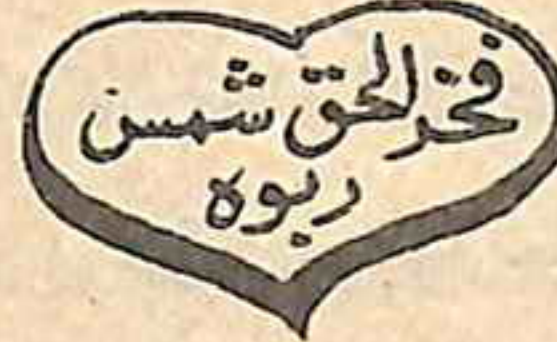 فخر الحق شمس
ربوہ